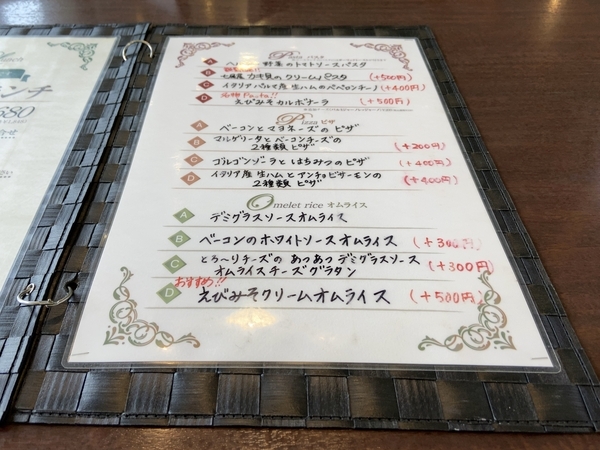 ンチ
680
Pasta パスタ
A 野菜のトマトソースパスタ
B 七塚産 カキ貝のクリームパスタ (+500円)
C イタリアパルマ産 生ハムのペペロンチーノ (+400円)
名物 Pasta!!
D えびみそカルボナーラ (+500円)
Pizza ピザ
A ベーコンとマヨネーズのピザ
B マルゲリータとベーコンチーズの
2種類ピザ (+200円)
C ゴルゴンゾーラとはちみつのピザ (+400円)
D イタリア産 生ハムとアンチョビサーモンの
2種類ピザ (+400円)
Omelet rice オムライス
A デミグラスソースオムライス
B ベーコンのホワイトソースオムライス (+300円)
C とろ〜りチーズの あつあつ デミグラスソース
オムライスチーズグラタン (+300円)
おすすめ!!
D えびみそクリームオムライス (+500円)